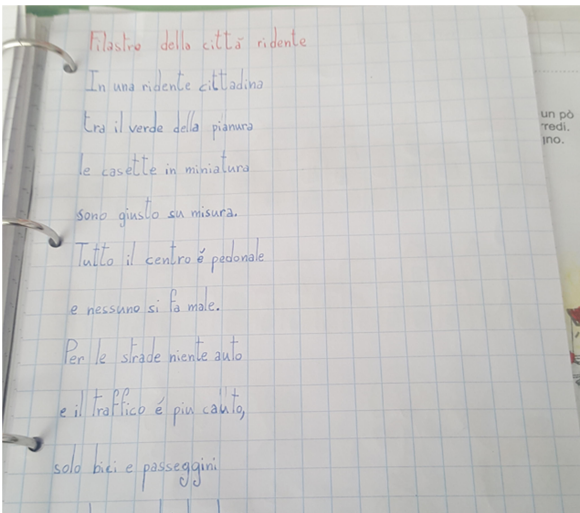 Filastro della città ridente
In una ridente cittadina
tra il verde della pianura
le casette in miniatura
sono giusto su misura.
Tutto il centro é pedonale
e nessuno si fa male.
Per le strade niente auto
e il traffico é piu cauto,
solo bici e passeggini
un pò
redi.
gno.